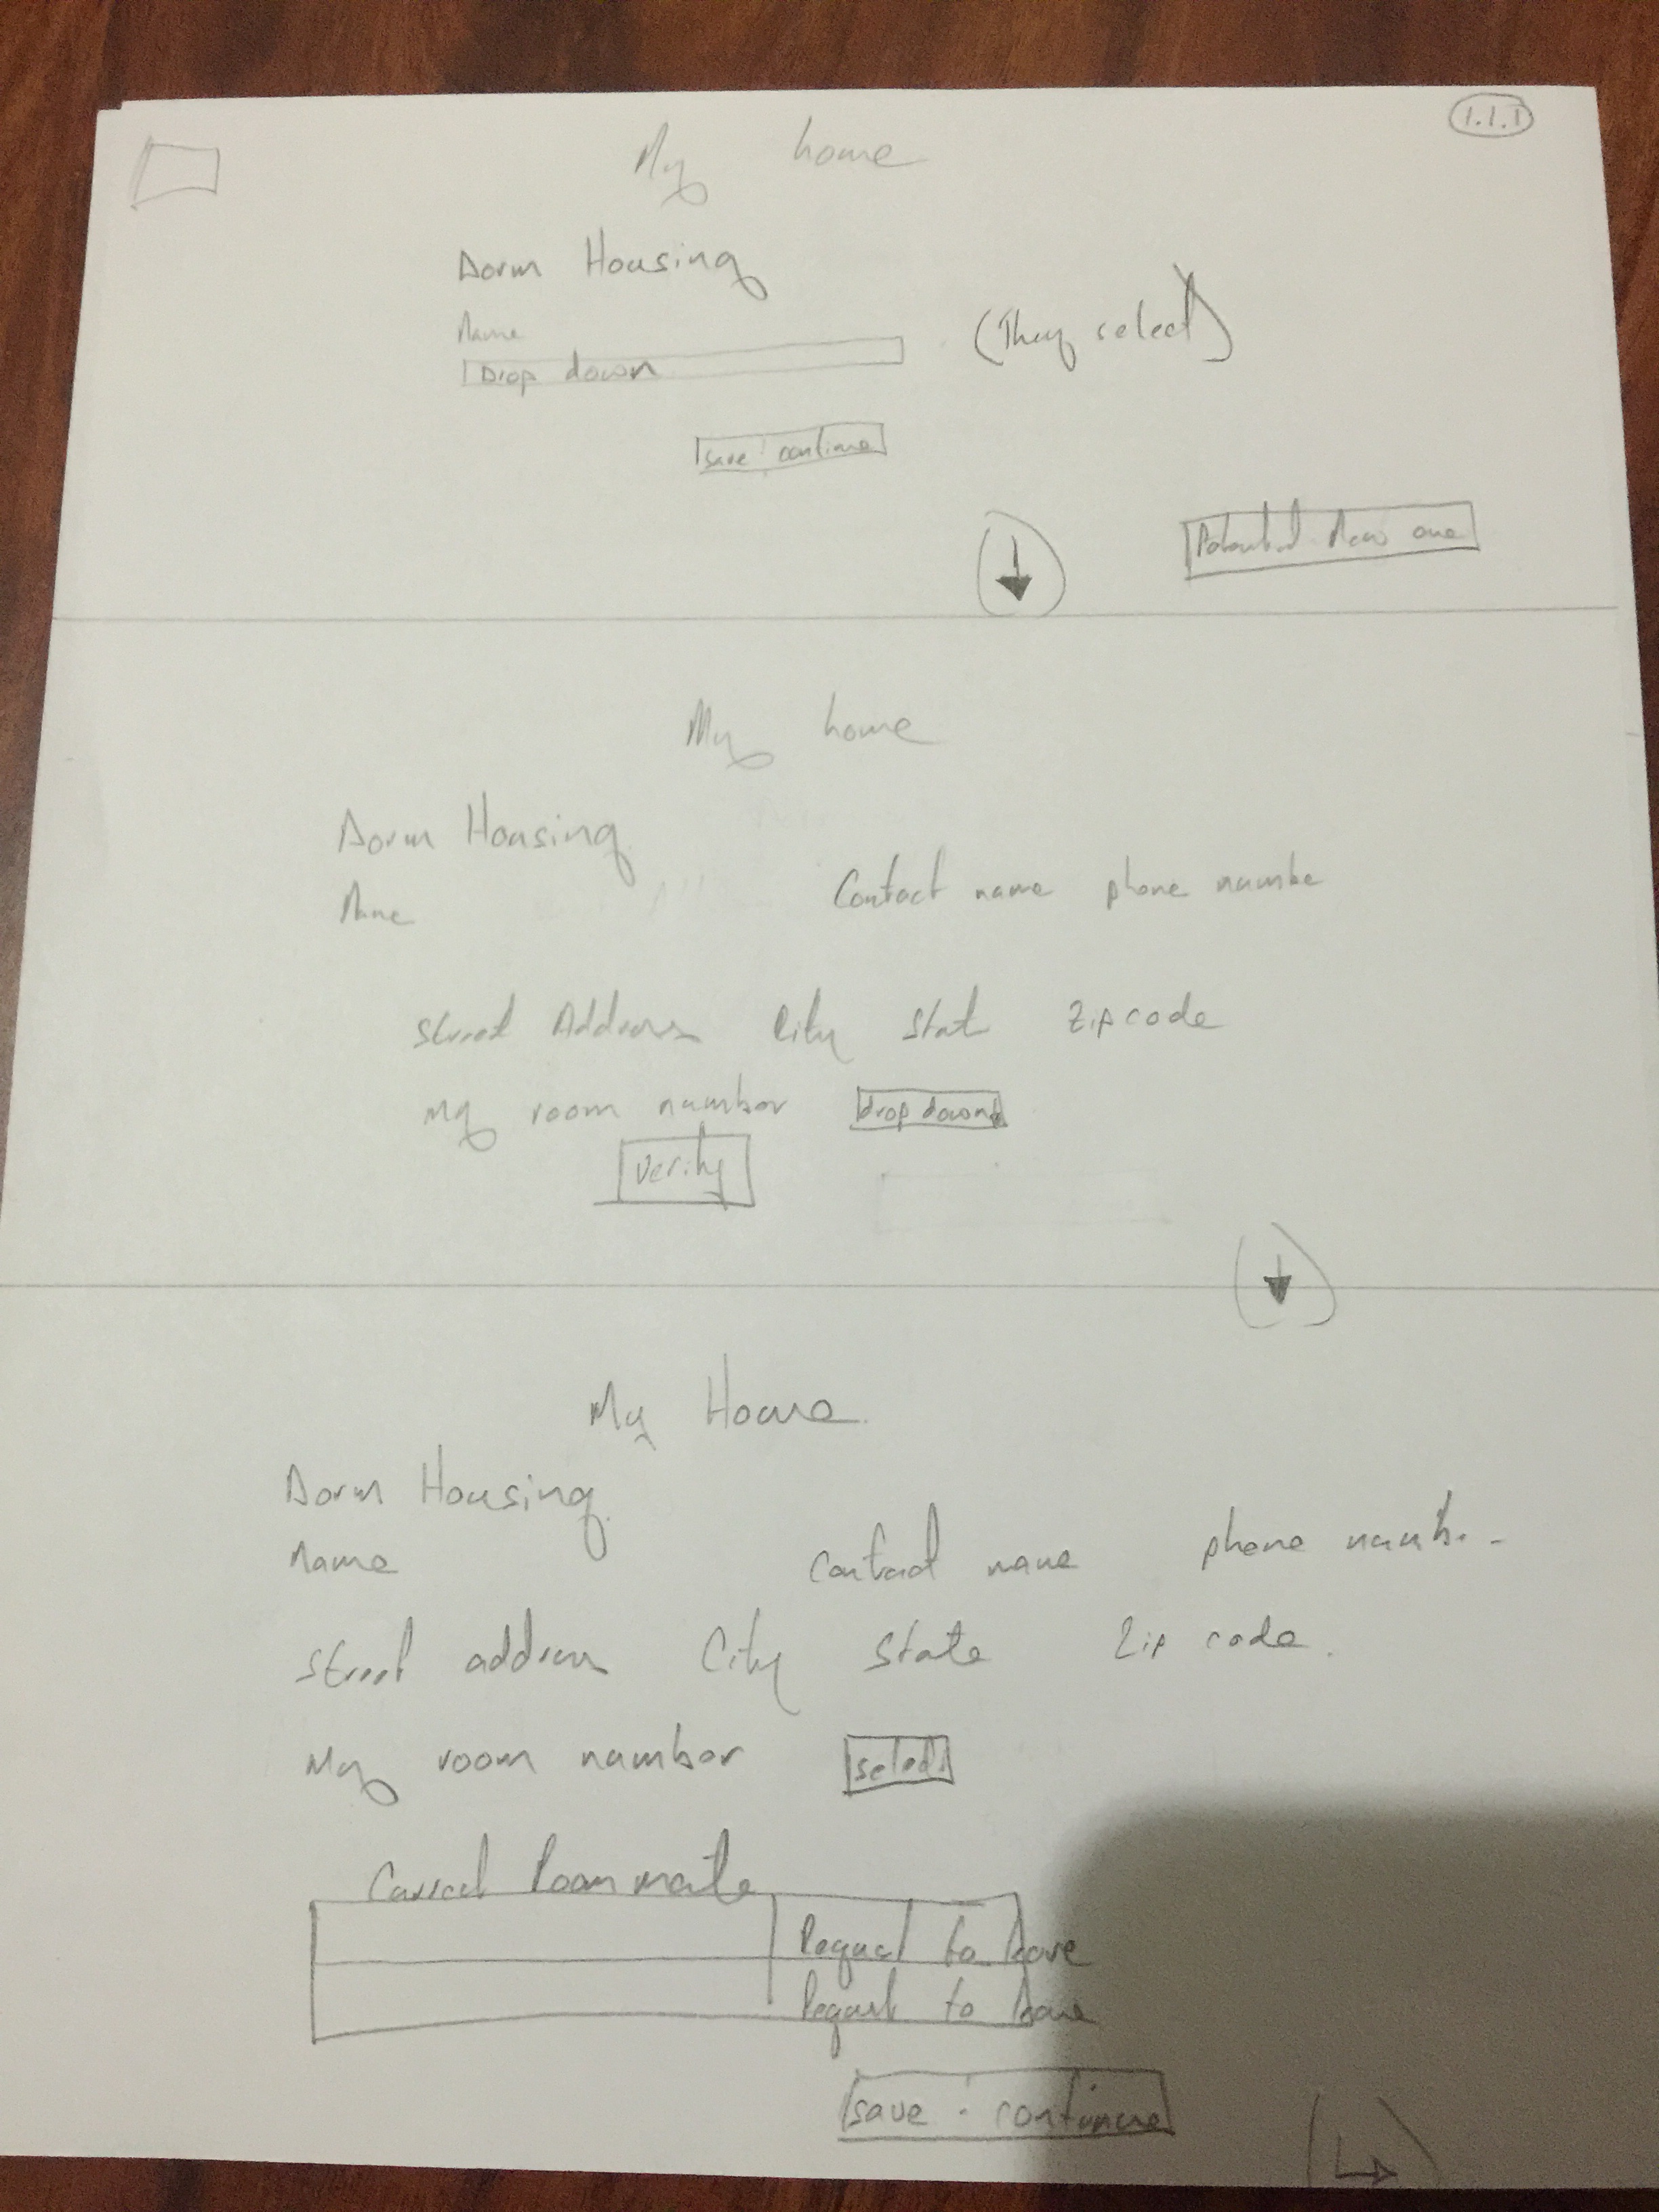 1.1.1
My home
Dorm Housing
Name
Drop down
(They select)
save continue
Potential New one
My home
Dorm Housing
Name
Contact name phone numbe
Street Address City Stat Zip code
My room number drop down
Verify
My Home
Dorm Housing
Name
Contact name phone numb..
Street address City State Zip code.
My room number select
Roommate
Request to leave
Request to leave
save · continue